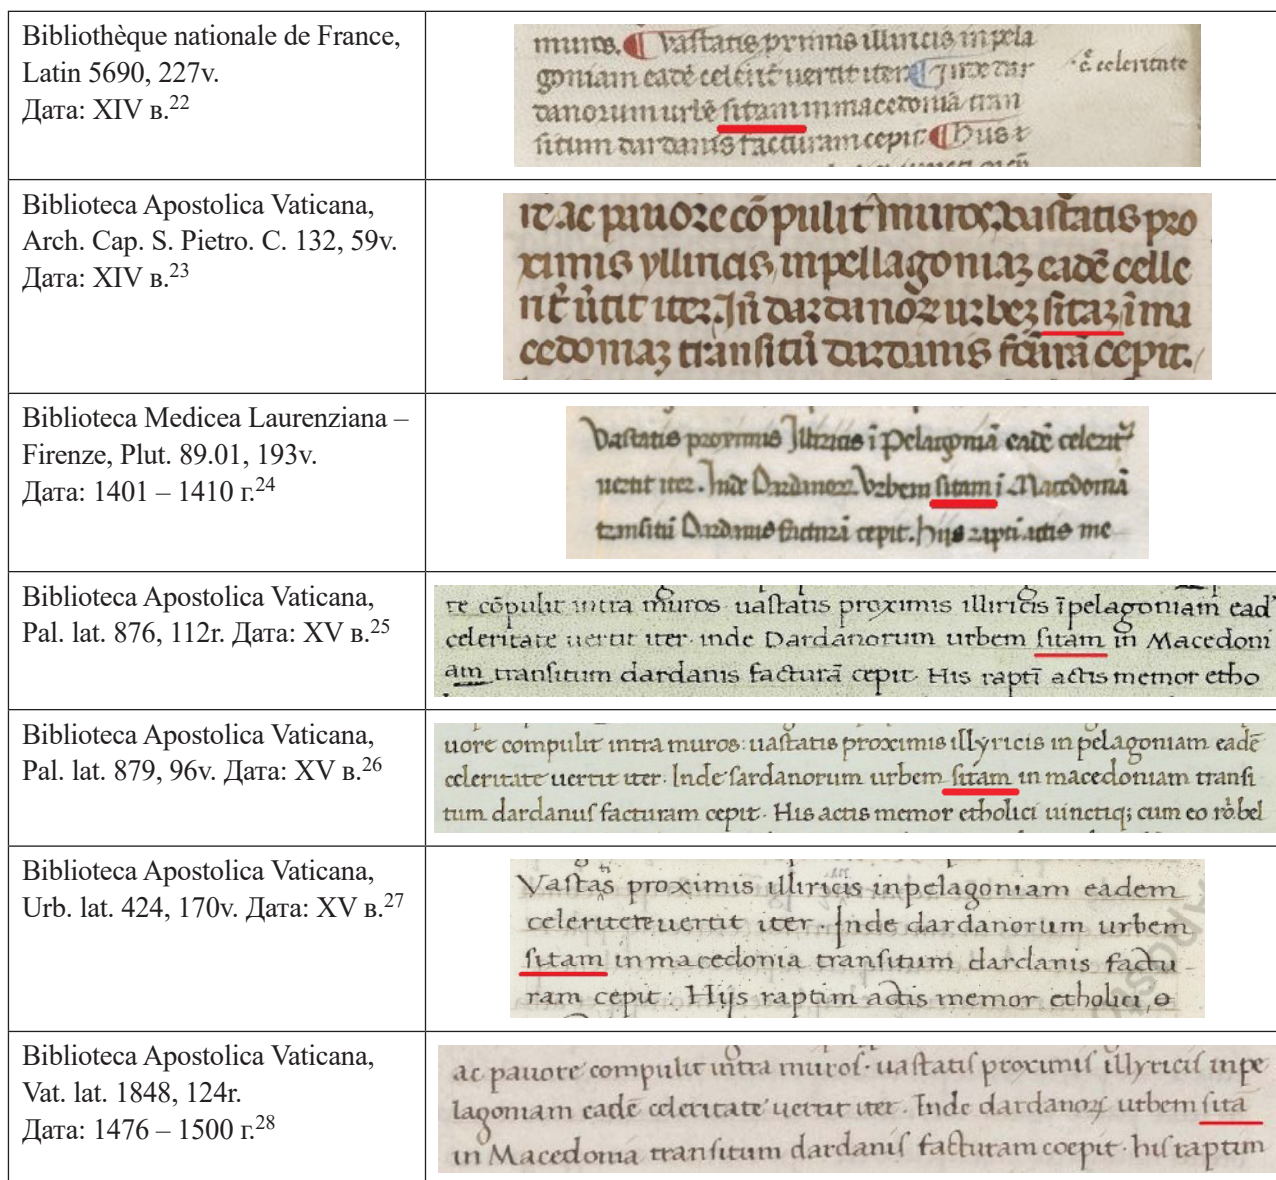 Bibliothèque nationale de France,
Latin 5690, 227v.
Дата: XIV в.22
muros. Vastatis primis illiricis in pela
goniam eadē celerit̄ uertit iter Inde dar
danorum urbē sitam in macedoniā tran
situm dardanis facturam cepit. Hus
c̄ celeritate
Biblioteca Apostolica Vaticana,
Arch. Cap. S. Pietro. C. 132, 59v.
Дата: XIV в.23
re ac pauore cōpulit muros. vastatis pro
ximis yllincis, in pellagoniaꝫ eadē celle
rit̄ ūtit iter. In̄ dardanoꝝ urbeꝫ sitaꝫ ī ma
cedoniaꝫ transitū dardanis fc̄urā cepit.
Biblioteca Medicea Laurenziana –
Firenze, Plut. 89.01, 193v.
Дата: 1401 – 1410 г.24
Vastatis proximis Illiricis ī Pelagoniā eadē celerit
uertit iter. Inde Dardanoꝝ Vrbem sitam ī Macedoniā
transitū Dardanis facturā cepit. hiis rapti actis me
Biblioteca Apostolica Vaticana,
Pal. lat. 876, 112r. Дата: XV в.25
re cōpulit intra muros uastatis proximis illiricis īpelagoniam ead
celeritate uertit iter inde Dardanorum urbem sitam in Macedoni
am transitum dardanis facturā cepit. His raptī actis memor etho
Biblioteca Apostolica Vaticana,
Pal. lat. 879, 96v. Дата: XV в.26
uore compulit intra muros: uastatis proximis illyricis in pelagoniam eadē
celeritate uertit iter. Inde sardanorum urbem sitam in macedoniam transi
tum dardanus facturam cepit. His actis memor etholici uinctiq; cum eo rō. bel
Biblioteca Apostolica Vaticana,
Urb. lat. 424, 170v. Дата: XV в.27
Vastas proximis illiricis inpelagoniam eadem
celeritete uertit iter. Inde dardanorum urbem
sitam in macedonia transitum dardanis factu-
ram cepit: Hijs raptim actis memor etholici, o
Biblioteca Apostolica Vaticana,
Vat. lat. 1848, 124r.
Дата: 1476 – 1500 г.28
ac pauore compulit intra muros. uastatis proximis illyricis inpe
lagoniam eadē celeritate uertit iter. Inde dardanoꝝ urbem sita
in Macedonia transitum dardanis facturam coepit. his raptim